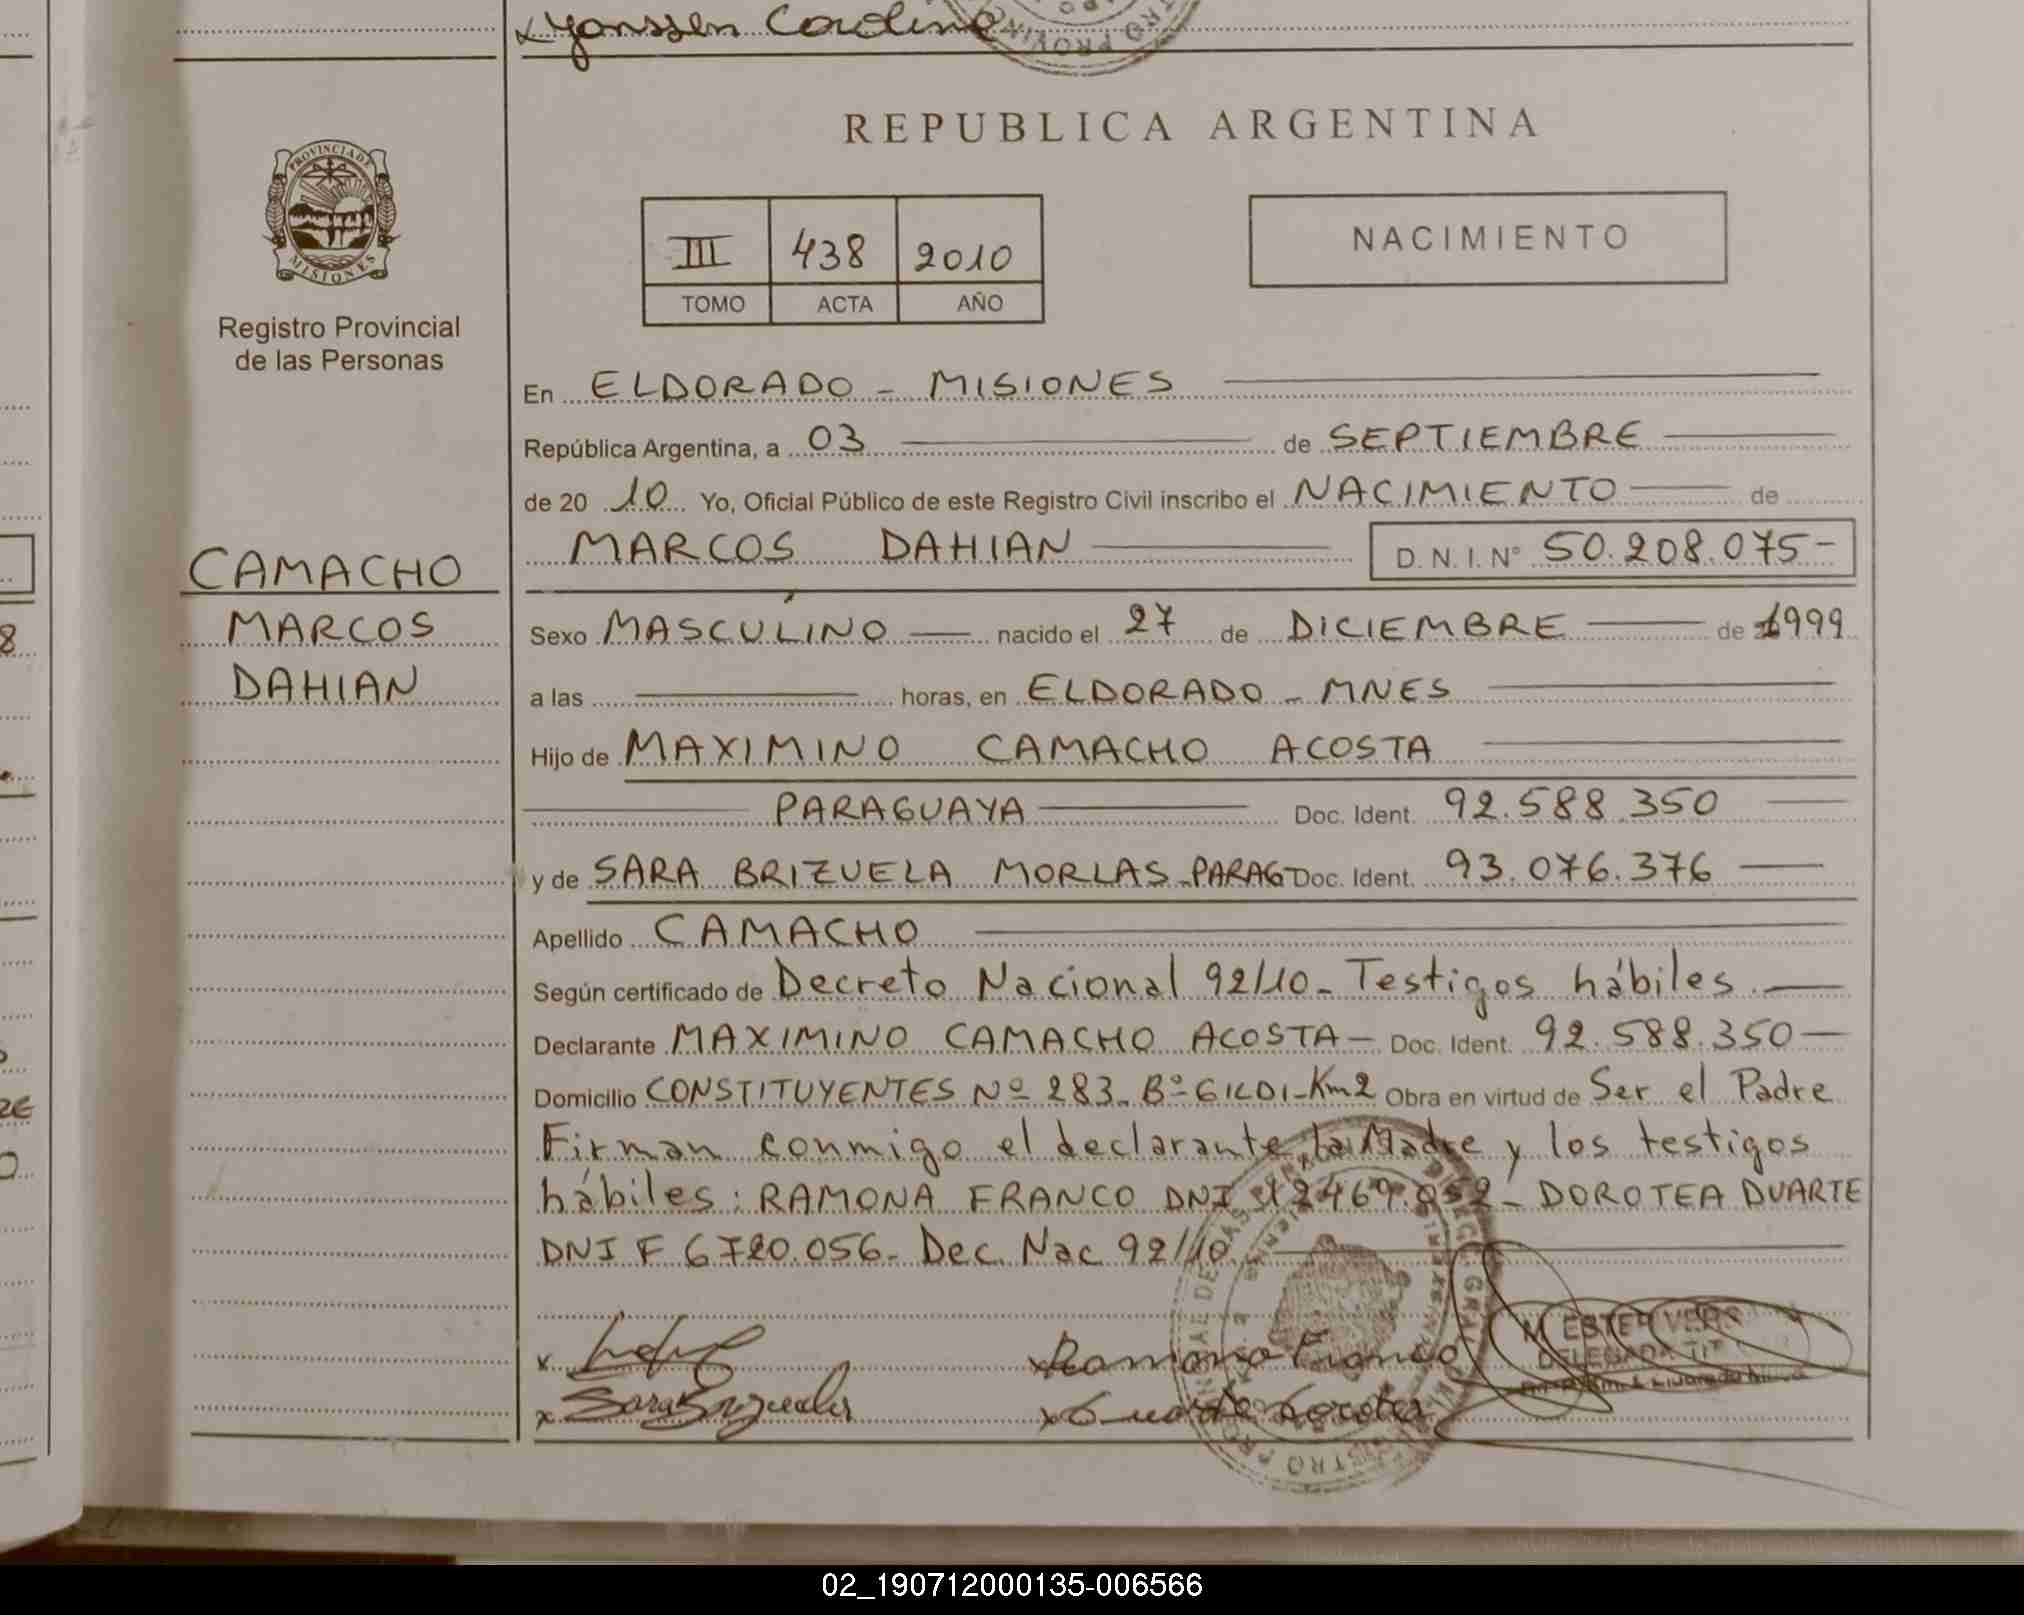 Yanssen Carolina
REPUBLICA ARGENTINA
PROVINCIA DE
MISIONES
Registro Provincial
de las Personas
III 438 2010
TOMO ACTA AÑO
NACIMIENTO
En ELDORADO - MISIONES
República Argentina, a 03 de SEPTIEMBRE
de 20 10 Yo, Oficial Público de este Registro Civil inscribo el NACIMIENTO de
MARCOS DAHIAN D.N.I. Nº 50.208.075-
CAMACHO
MARCOS
DAHIAN
Sexo MASCULINO nacido el 27 de DICIEMBRE de 1999
a las horas, en ELDORADO - MNES
Hijo de MAXIMINO CAMACHO ACOSTA
PARAGUAYA Doc. Ident. 92.588.350
y de SARA BRIZUELA MORLAS - PARAG Doc. Ident. 93.076.376
Apellido CAMACHO
Según certificado de Decreto Nacional 92/10 - Testigos hábiles.
Declarante MAXIMINO CAMACHO ACOSTA - Doc. Ident. 92.588.350
Domicilio CONSTITUYENTES Nº 283 - Bº GILDI - Km2 Obra en virtud de Ser el Padre
Firman conmigo el declarante, la Madre y los testigos
hábiles: RAMONA FRANCO DNI 12469.052 - DOROTEA DUARTE
DNI F 6720.056 - Dec. Nac 92/10.
x
x Sara Brizuela
x Ramona Franco
x Duarte Dorotea
M. ESTER VERA
DELEGADA TIT
02_190712000135-006566